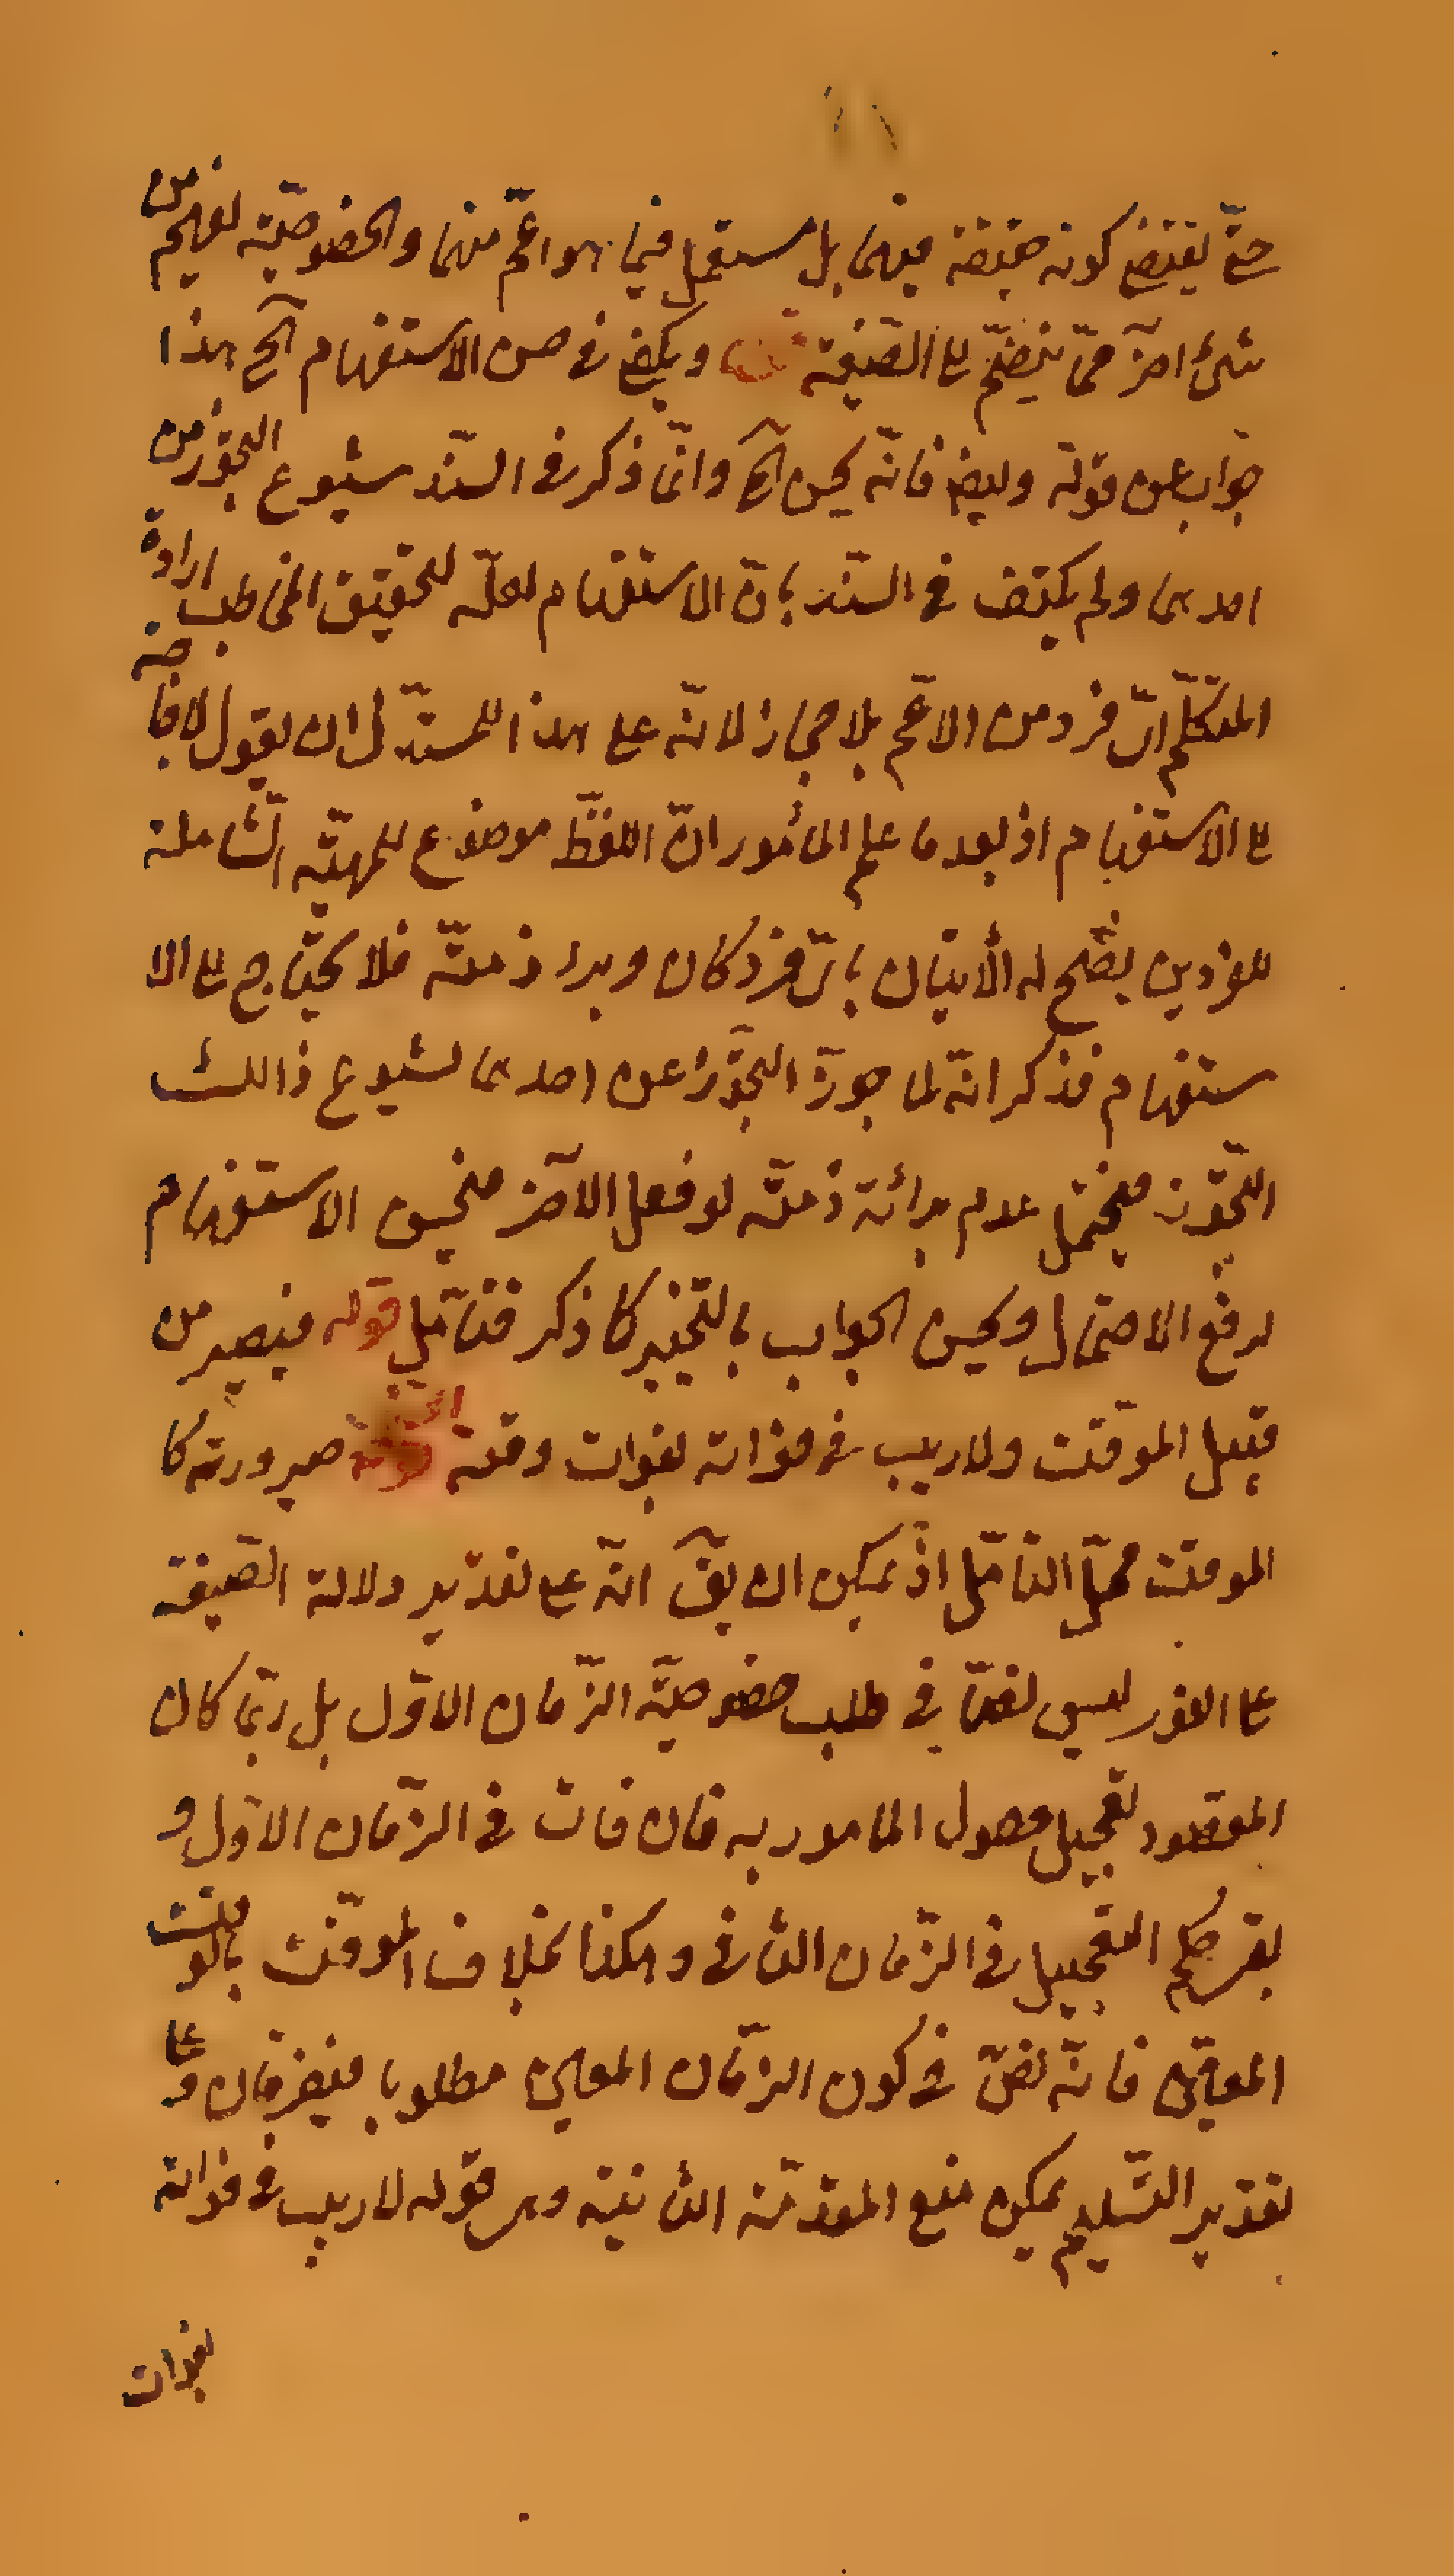 حتى يقتضى كونه حقيقة فيهما بل مستعمل فيما هو اعمّ منهما والخصوصيّة يفهم من
شئ آخر حتى ينضمّ الى الصّيغة قوله ويكفى فى حسن الاستفهام آلخ هذا
جواب عن قوله وايضا فانّه يحسن آلخ وانّما ذكر فى السّند شيوع التجوّز من
احدهما ولم يكتف فى السّند بانّ الاستفهام لعلّه لتحقيق المخاطب ارادة
المتكلّم اىّ فرد من الاعّم بلا مجاز لانّه على هذا للمستدّل ان يقول لا حاجة
الى الاستفهام اذ بعد ما علم المأمور انّ اللفظ موضوع للمهيّة الشّاملة
للفردين يصّح له الأتيان باىّ فرد كان وبراء ذمتّه فلا يحتاج الى الا
ستفهام فذكر انّه لما جوزّ التجوّز عن احدهما لشيوع ذالك
التجّوز فيحتمل عدم برائة ذمتّه لو فعل الآخر فيحسن الاستفهام
لرفع الاحتمال ويحسن الجواب بالتّخيير كما ذكر فتامّل قوله فيصير من
قبيل الموقت ولا ريب فى فواته بفوات وقته قوله صيرورته كا
الموقت محلّ التامّل اذ يمكن ان يقّ انّه على تقدير دلالة الصّيغة
على الفور ليس نصّا فى طلب خصوصيّة الزّمان الاوّل بل ربّما كان
المقصود تعجيل حصول المامور به فان فات فى الزّمان الاوّل و
بقى حكم التعجيل فى الزّمان الثانى وهكذا بخلاف الموقت بالوقت
المعيّن فانّه نصّ فى كون الزمّان المعين مطلوبا فيفترقان وعلى
تقدير التّسليم يمكن منع المقدّمة الثانية وهى قوله لا ريب فى فواته
بفوات